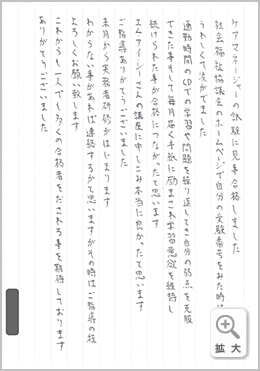 ケアマネージャーの試験に見事合格しました
社会福祉協議会のホームページで自分の受験番号をみた時は
うれしくて涙がでました
通勤時間のCDでの学習や問題を繰り返しでき自分の弱点を克服
できた事そして毎月届く手紙に励まされ学習意欲を維持し
続けられた事が合格につながったと思います
エムアイシーさんの講座に申しこみ本当に良かったと思います
ご指導ありがとうございました
来月から実務者研修がはじまります
わからない事があれば連絡するかと思いますがその時はご指導の程
よろしくお願い致します
これからも一人でも多くの合格者をだされる事を期待しております
ありがとうございました
拡大